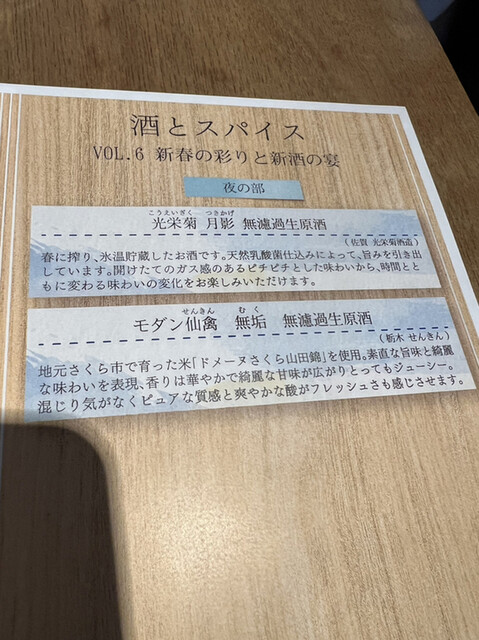 酒とスパイス
VOL.6 新春の彩りと新酒の宴
夜の部
こうえいぎく つきかげ
光栄菊 月影 無濾過生原酒
(佐賀 光栄菊酒造)
春に搾り、氷温貯蔵したお酒です。天然乳酸菌仕込みによって、旨みを引き出
しています。開けたてのガス感のあるピチピチとした味わいから、時間とと
もに変わる味わいの変化をお楽しみいただけます。
せんきん むく
モダン仙禽 無垢 無濾過生原酒
(栃木 せんきん)
地元さくら市で育った米「ドメーヌさくら山田錦」を使用。素直な旨味と綺麗
な味わいを表現、香りは華やかで綺麗な甘味が広がりとってもジューシー。
混じり気がなくピュアな質感と爽やかな酸がフレッシュさも感じさせます。